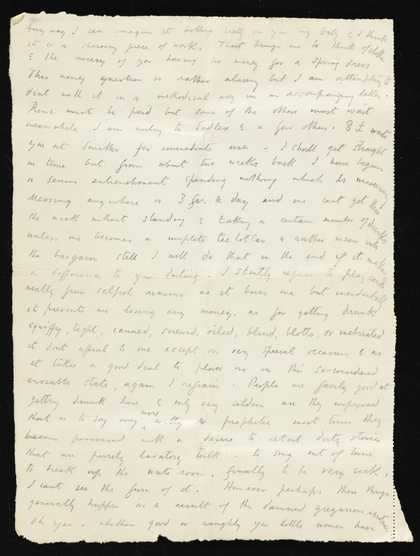 way I can imagine it nothing really on you my baby & I think
it is a charming piece of work. That brings me to think of clothes
& the misery of you having no money for a spring dress
This money question is rather alarming but I am attempting to
deal with it in a methodical way in an accompanying letter.
Rent must be paid but some of the others must wait
meanwhile I am writing to & a few others. & I want
you at for immediate use - I shall get straight
in time but from about two weeks back I have begun
a serious entrenchment spending nothing which is
Messing anywhere is 3 a day and one cant get thro
the week without standing & taking a certain number of drinks
unless one becomes a complete teetotlar & rather mean into
the bargain still I will do that in the end if it makes
a difference to you darling. I strictly refuse to play cards
really from selfish reasons as it bores me but incidentally
it prevents me losing any money. as for getting drunk
squiffy, tight, canned, screwed, oiled, blind, blotto, or inebriated
it dont appeal to me except on very special occasions & as
it takes a good deal to place me in this so-considered
enviable state, again I refrain. People are fairly good at
getting drunk here & only very seldom are they
that is to say very witty or prophetic most times they
become possessed with a desire to retail dirty stories
that are purely lavatory - to sing out of tune
to break up the ante room, finally to be very sick,
I cant see the fun of it. However perhaps these things
generally happen as a result of the damned gregarious
Oh yes, whether good or naughty you little women have